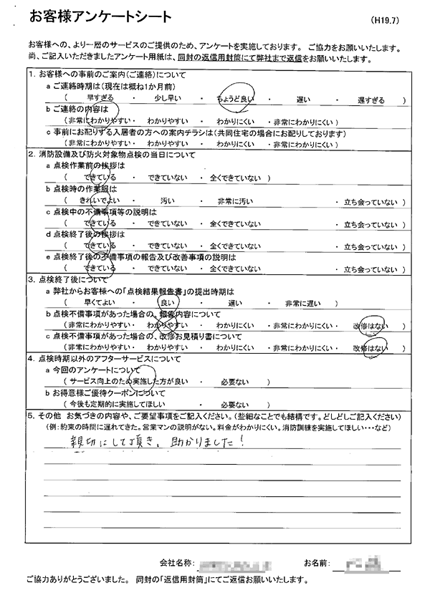 お客様アンケートシート
(H19.7)
お客様への、より一層のサービスのご提供のため、アンケートを実施しております。 ご協力をお願いいたします。
尚、ご記入いただきましたアンケート用紙は、同封の返信用封筒にて弊社まで返信をお願いいたします。
1. お客様への事前のご案内(ご連絡)について
a ご連絡時期は(現在は概ね1か月前)
( 早すぎる ・ 少し早い ・ ちょうど良い ・ 遅い ・ 遅すぎる )
b ご連絡の内容は
(非常にわかりやすい ・ わかりやすい ・ わかりにくい ・ 非常にわかりにくい )
c 事前にお配りする入居者の方への案内チラシは(共同住宅の場合にお配りしております)
(非常にわかりやすい ・ わかりやすい ・ わかりにくい ・ 非常にわかりにくい )
2. 消防設備及び防火対象物点検の当日について
a 点検作業前の挨拶は
( できている ・ できていない ・ 全くできていない )
b 点検時の作業服は
( きれいでよい ・ 汚い ・ 非常に汚い ・ 立ち会っていない )
c 点検中の不備事項等の説明は
( できている ・ できていない ・ 全くできていない ・ 立ち会っていない )
d 点検終了後の挨拶は
( できている ・ できていない ・ 全くできていない ・ 立ち会っていない )
e 点検終了後の不備事項の報告及び改善事項の説明は
( できている ・ できていない ・ 全くできていない ・ 立ち会っていない )
3. 点検終了後について
a 弊社からお客様への「点検結果報告書」の提出時期は
( 早くてよい ・ 良い ・ 遅い ・ 非常に遅い )
b 点検不備事項があった場合の、提案内容について
(非常にわかりやすい ・ わかりやすい ・ わかりにくい ・ 非常にわかりにくい ・ 改修はない )
c 点検不備事項があった場合の、改修お見積り書について
(非常にわかりやすい ・ わかりやすい ・ わかりにくい ・ 非常にわかりにくい ・ 改修はない )
4. 点検時期以外のアフターサービスについて
a 今回のアンケートについて
( サービス向上のため実施した方が良い ・ 必要ない )
b お得意様ご優待クーポンについて
( 今後も定期的に実施してほしい ・ 必要ない )
5. その他 お気づきの内容や、ご要望事項をご記入ください。(些細なことでも結構です。どしどしご記入ください)
(例:約束の時間に遅れてきた。営業マンの説明がない。料金がわかりにくい。消防訓練を実施してほしい・・・など)
親切にして頂き、助かりました!
会社名称:
お名前:
ご協力ありがとうございました。 同封の「返信用封筒」にてご返信お願いいたします。